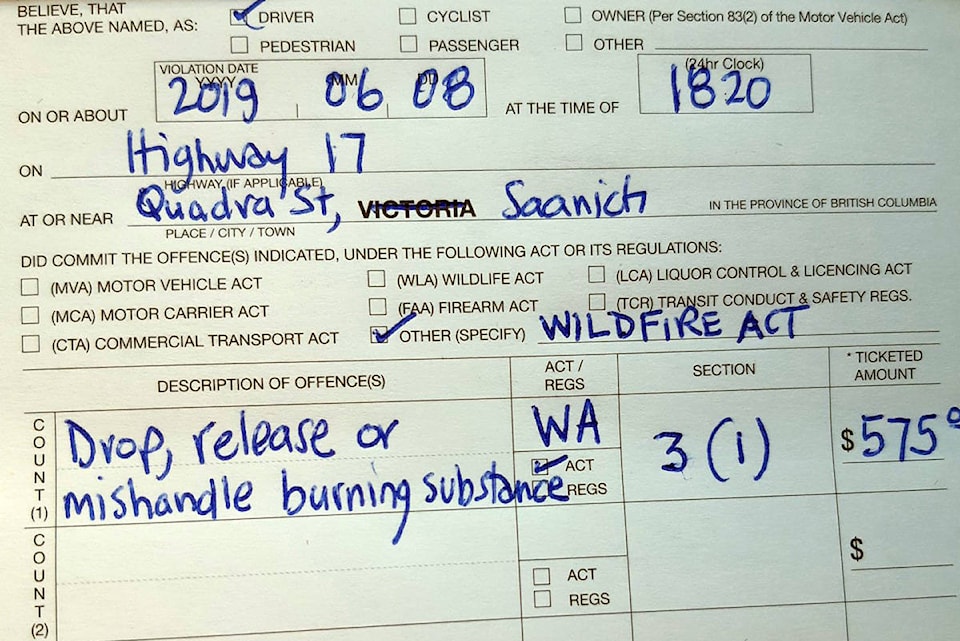 BELIEVE, THAT
THE ABOVE NAMED, AS:
DRIVER CYCLIST OWNER (Per Section 83(2) of the Motor Vehicle Act)
PEDESTRIAN PASSENGER OTHER
VIOLATION DATE (24hr Clock)
YYYY MM DD
ON OR ABOUT 2019 06 08 AT THE TIME OF 1820
ON Highway 17
HIGHWAY (IF APPLICABLE)
AT OR NEAR Quadra St, VICTORIA Saanich IN THE PROVINCE OF BRITISH COLUMBIA
PLACE / CITY / TOWN
DID COMMIT THE OFFENCE(S) INDICATED, UNDER THE FOLLOWING ACT OR ITS REGULATIONS:
(MVA) MOTOR VEHICLE ACT (WLA) WILDLIFE ACT (LCA) LIQUOR CONTROL & LICENCING ACT
(MCA) MOTOR CARRIER ACT (FAA) FIREARM ACT (TCR) TRANSIT CONDUCT & SAFETY REGS.
(CTA) COMMERCIAL TRANSPORT ACT OTHER (SPECIFY) WILDFIRE ACT
DESCRIPTION OF OFFENCE(S) ACT / REGS SECTION * TICKETED AMOUNT
COUNT (1) Drop, release or WA 3 (1) $575
mishandle burning substance ACT
REGS
COUNT (2) $
ACT
REGS